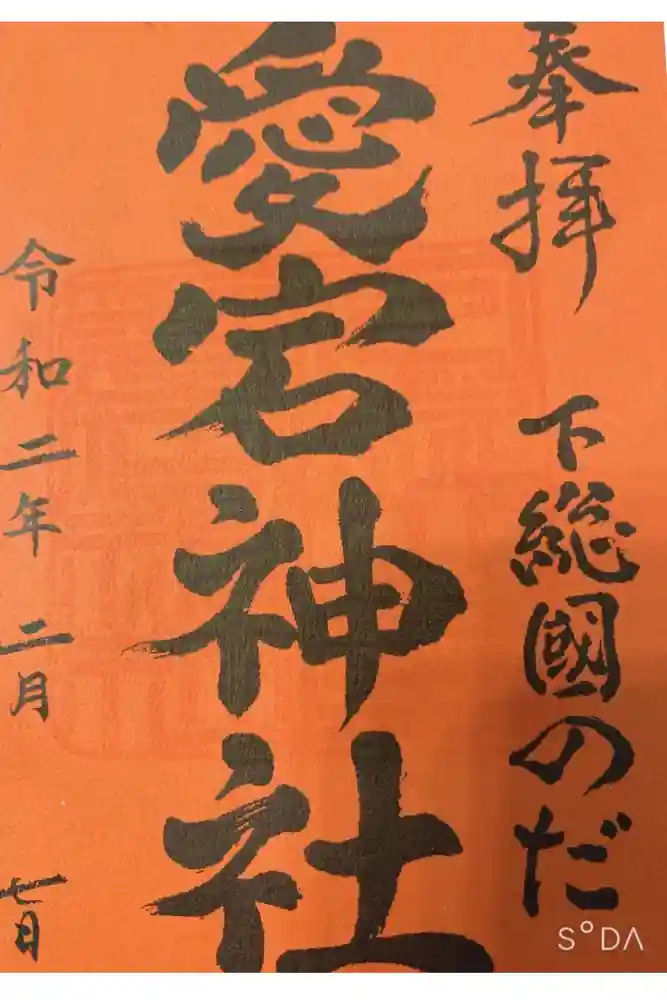 奉拝　下総國のだ
愛宕神社
令和二年 二月 七日
SODA